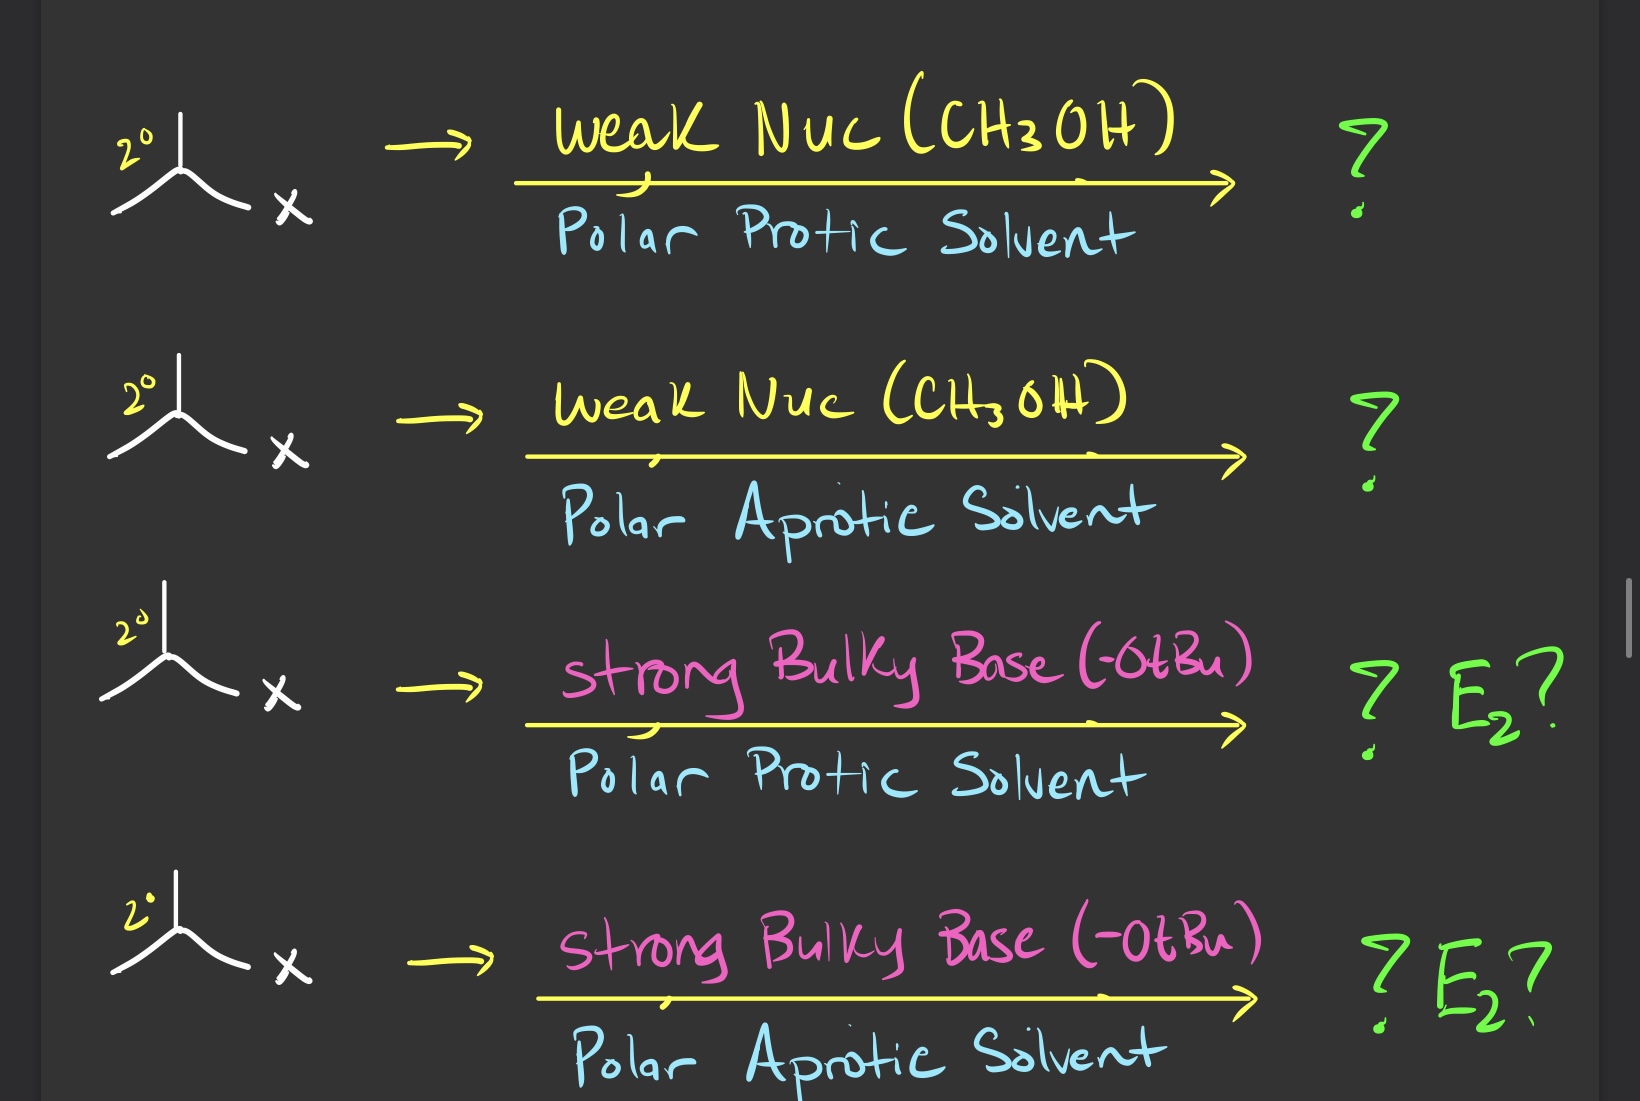 2° X → weak Nuc (CH3OH) ?
Polar Protic Solvent
2° X → weak Nuc (CH3OH) ?
Polar Aprotic Solvent
2° X → strong Bulky Base (-OtBu) ? E2?
Polar Protic Solvent
2° X → strong Bulky Base (-OtBu) ? E2?
Polar Aprotic Solvent